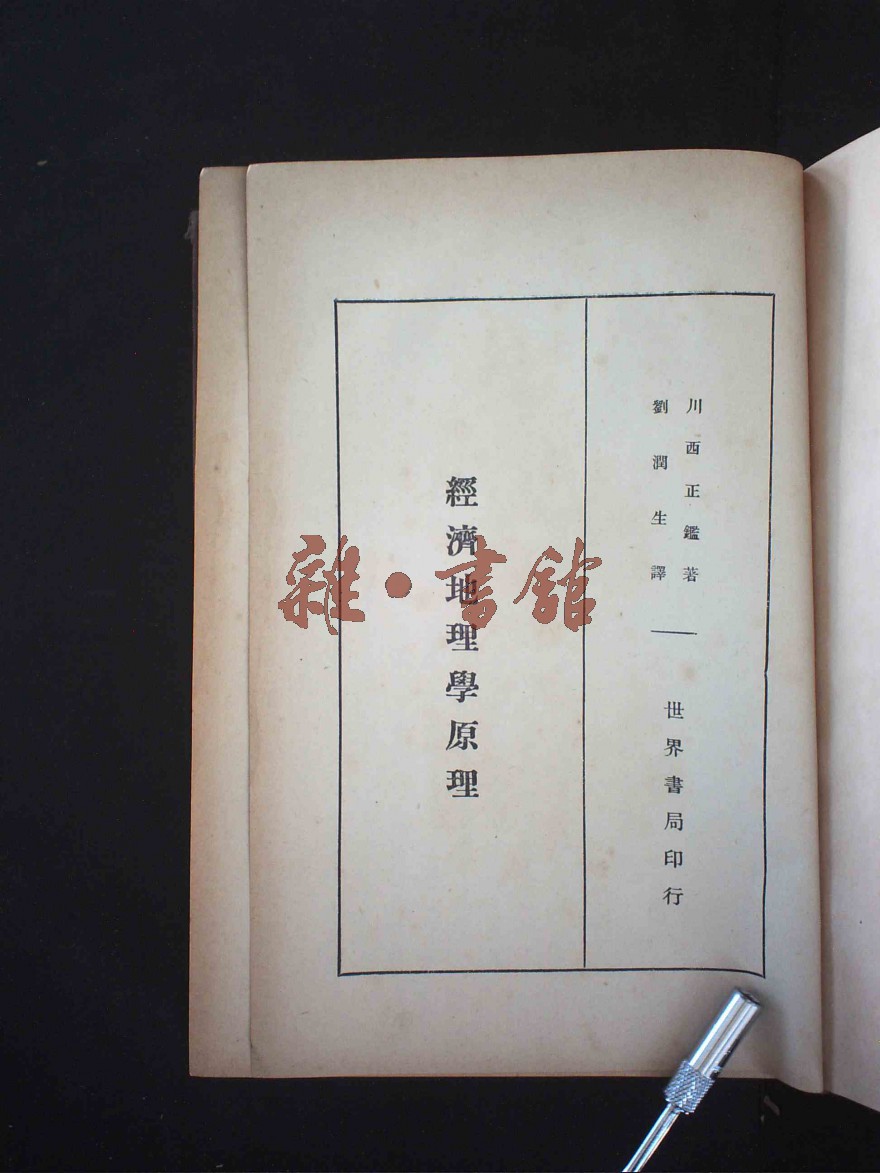 川西正鑑著
劉潤生譯
世界書局印行
經濟地理學原理
雜·書館